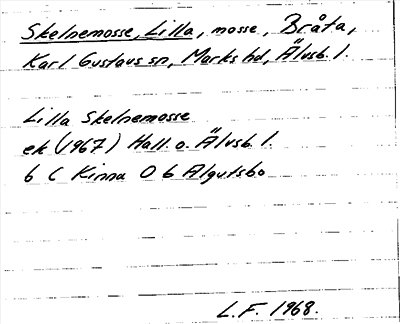 Skelnemosse, Lilla, mosse, Bråta,
Karl Gustavs sn, Marks hd, Älvsb. l.
Lilla Skelnemosse
ek (1967) Hall. o. Älvsb. l.
6 C Kinna 0 b Algutsbo
L.F. 1968.